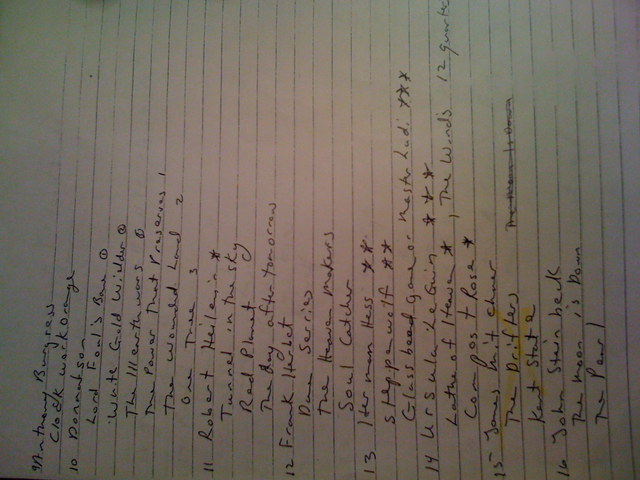 9 Anthony Burgess
Clock work Orange
10 Donnalson
Lord Foul's Bane ①
White Guild Wilder ②
The Illearthwars ①
The Power That Preserves 1
The wounded Land 2
One Tree 3
11 Robert Heilein *
Tunnel in the sky
Red Planet
The day after tomorrow
12 Frank Herbet
Dune Serries
The Heaven Makers
Soul Catcher
13 Herman Hess **
Steppewolf **
Glass bead game or Master Ludi ***
14 Ursula LeGuin ***
Lathe of Heaven *, The Winds 12 quarte
Compos + Rose *
15 James Mitchner
The Drifters
Kent State
16 John Steinbeck
The moon is Down
The Pearl